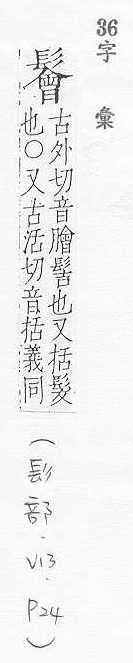 36字彙
鬠
古外切音膾髻也又括髮
也○又古活切音括義同
(髟部.V13.P24)